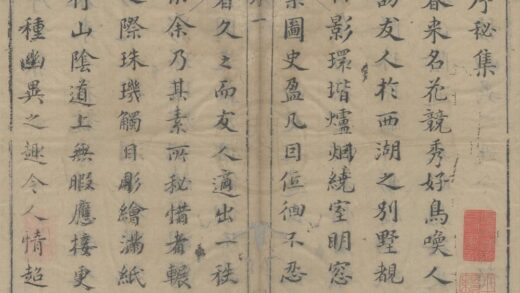 序秘集
春來名花競秀好鳥喚人
訪友人於西湖之別墅覩
影環堦爐烟繞室明窓
圖史盈几因低徊不忍
一
者久之而友人適出一袟
示余乃其素所秘惜者輾
之際珠璣觸目彫繪滿紙
行山陰道上無暇應接更
種幽異之趣令人情超